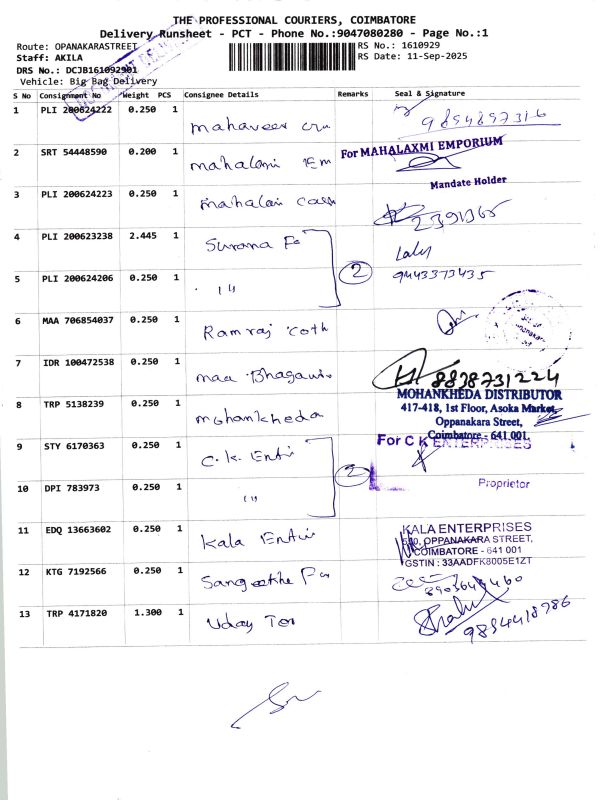 THE PROFESSIONAL COURIERS, COIMBATORE
Delivery Runsheet - PCT - Phone No.:9047080280 - Page No.:1
Route: OPANAKARASTREET
RS No.: 1610929
Staff: AKILA
RS Date: 11-Sep-2025
DRS No.: DCJB161092901
Vehicle: Big Bag Delivery
S No Consignment No Weight PCS Consignee Details Remarks Seal & Signature
1 PLI 200624222 0.250 1 mahaveer 9894897316
2 SRT 54448590 0.200 1 mahalaxmi Em For MAHALAXMI EMPORIUM
Mandate Holder
3 PLI 200624223 0.250 1 mahalaxi
4 PLI 200623238 2.445 1 Surana Fa
2
5 PLI 200624206 0.250 1 " 9443373435
6 MAA 706854037 0.250 1 Ramraj Coth
7 IDR 100472538 0.250 1 maa Bhagawa 8838731224
8 TRP 5138239 0.250 1 mohankheda MOHANKHEDA DISTRIBUTOR
417-418, 1st Floor, Asoka Market,
Oppanakara Street,
Coimbatore - 641 001.
9 STY 6170363 0.250 1 C.K. Enti For C K ENTERPRISES
2
10 DPI 783973 0.250 1 " Proprietor
11 EDQ 13663602 0.250 1 Kala Enti KALA ENTERPRISES
OPPANAKARA STREET,
COIMBATORE - 641 001
GSTIN : 33AADFK8005E1ZT
12 KTG 7192566 0.250 1 Sangeetha
13 TRP 4171820 1.300 1 Uday Tex 9894418786